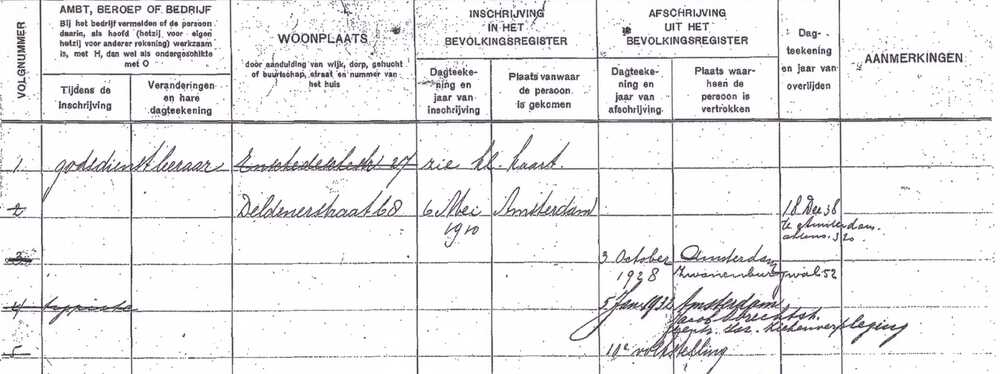 VOLGNUMMER
AMBT, BEROEP OF BEDRIJF
Bij het bedrijf vermelden of de persoon
daarin, als hoofd (hetzij voor eigen
hetzij voor anderer rekening) werkzaam
is, met H, dan wel als ondergeschikte
met O
Tijdens de
inschrijving
Veranderingen
en hare
dagteekening
WOONPLAATS
door aanduiding van wijk, dorp, gehucht
of buurtschap, straat en nummer van
het huis
INSCHRIJVING
IN HET
BEVOLKINGSREGISTER
Dagteeke-
ning en
jaar van
inschrijving
Plaats vanwaar
de persoon
is gekomen
AFSCHRIJVING
UIT HET
BEVOLKINGSREGISTER
Dagteeke-
ning en
jaar van
afschrijving
Plaats waar-
heen de
persoon is
vertrokken
Dag-
teekening
en jaar van
overlijden
AANMERKINGEN
1 godsdienstleeraar 27 zie kaart.
2 Deldenerstraat 68 6 Mei Amsterdam 18 Dec 38
1910 te Amsterdam.
3 3 October Amsterdam
1928 Zwanenburgwal 52
4 typiste 5 Jan. Amsterdam
Jacob Obrechtstr.
Centr. Isr. Ziekenverpleging
5 10e volkstelling